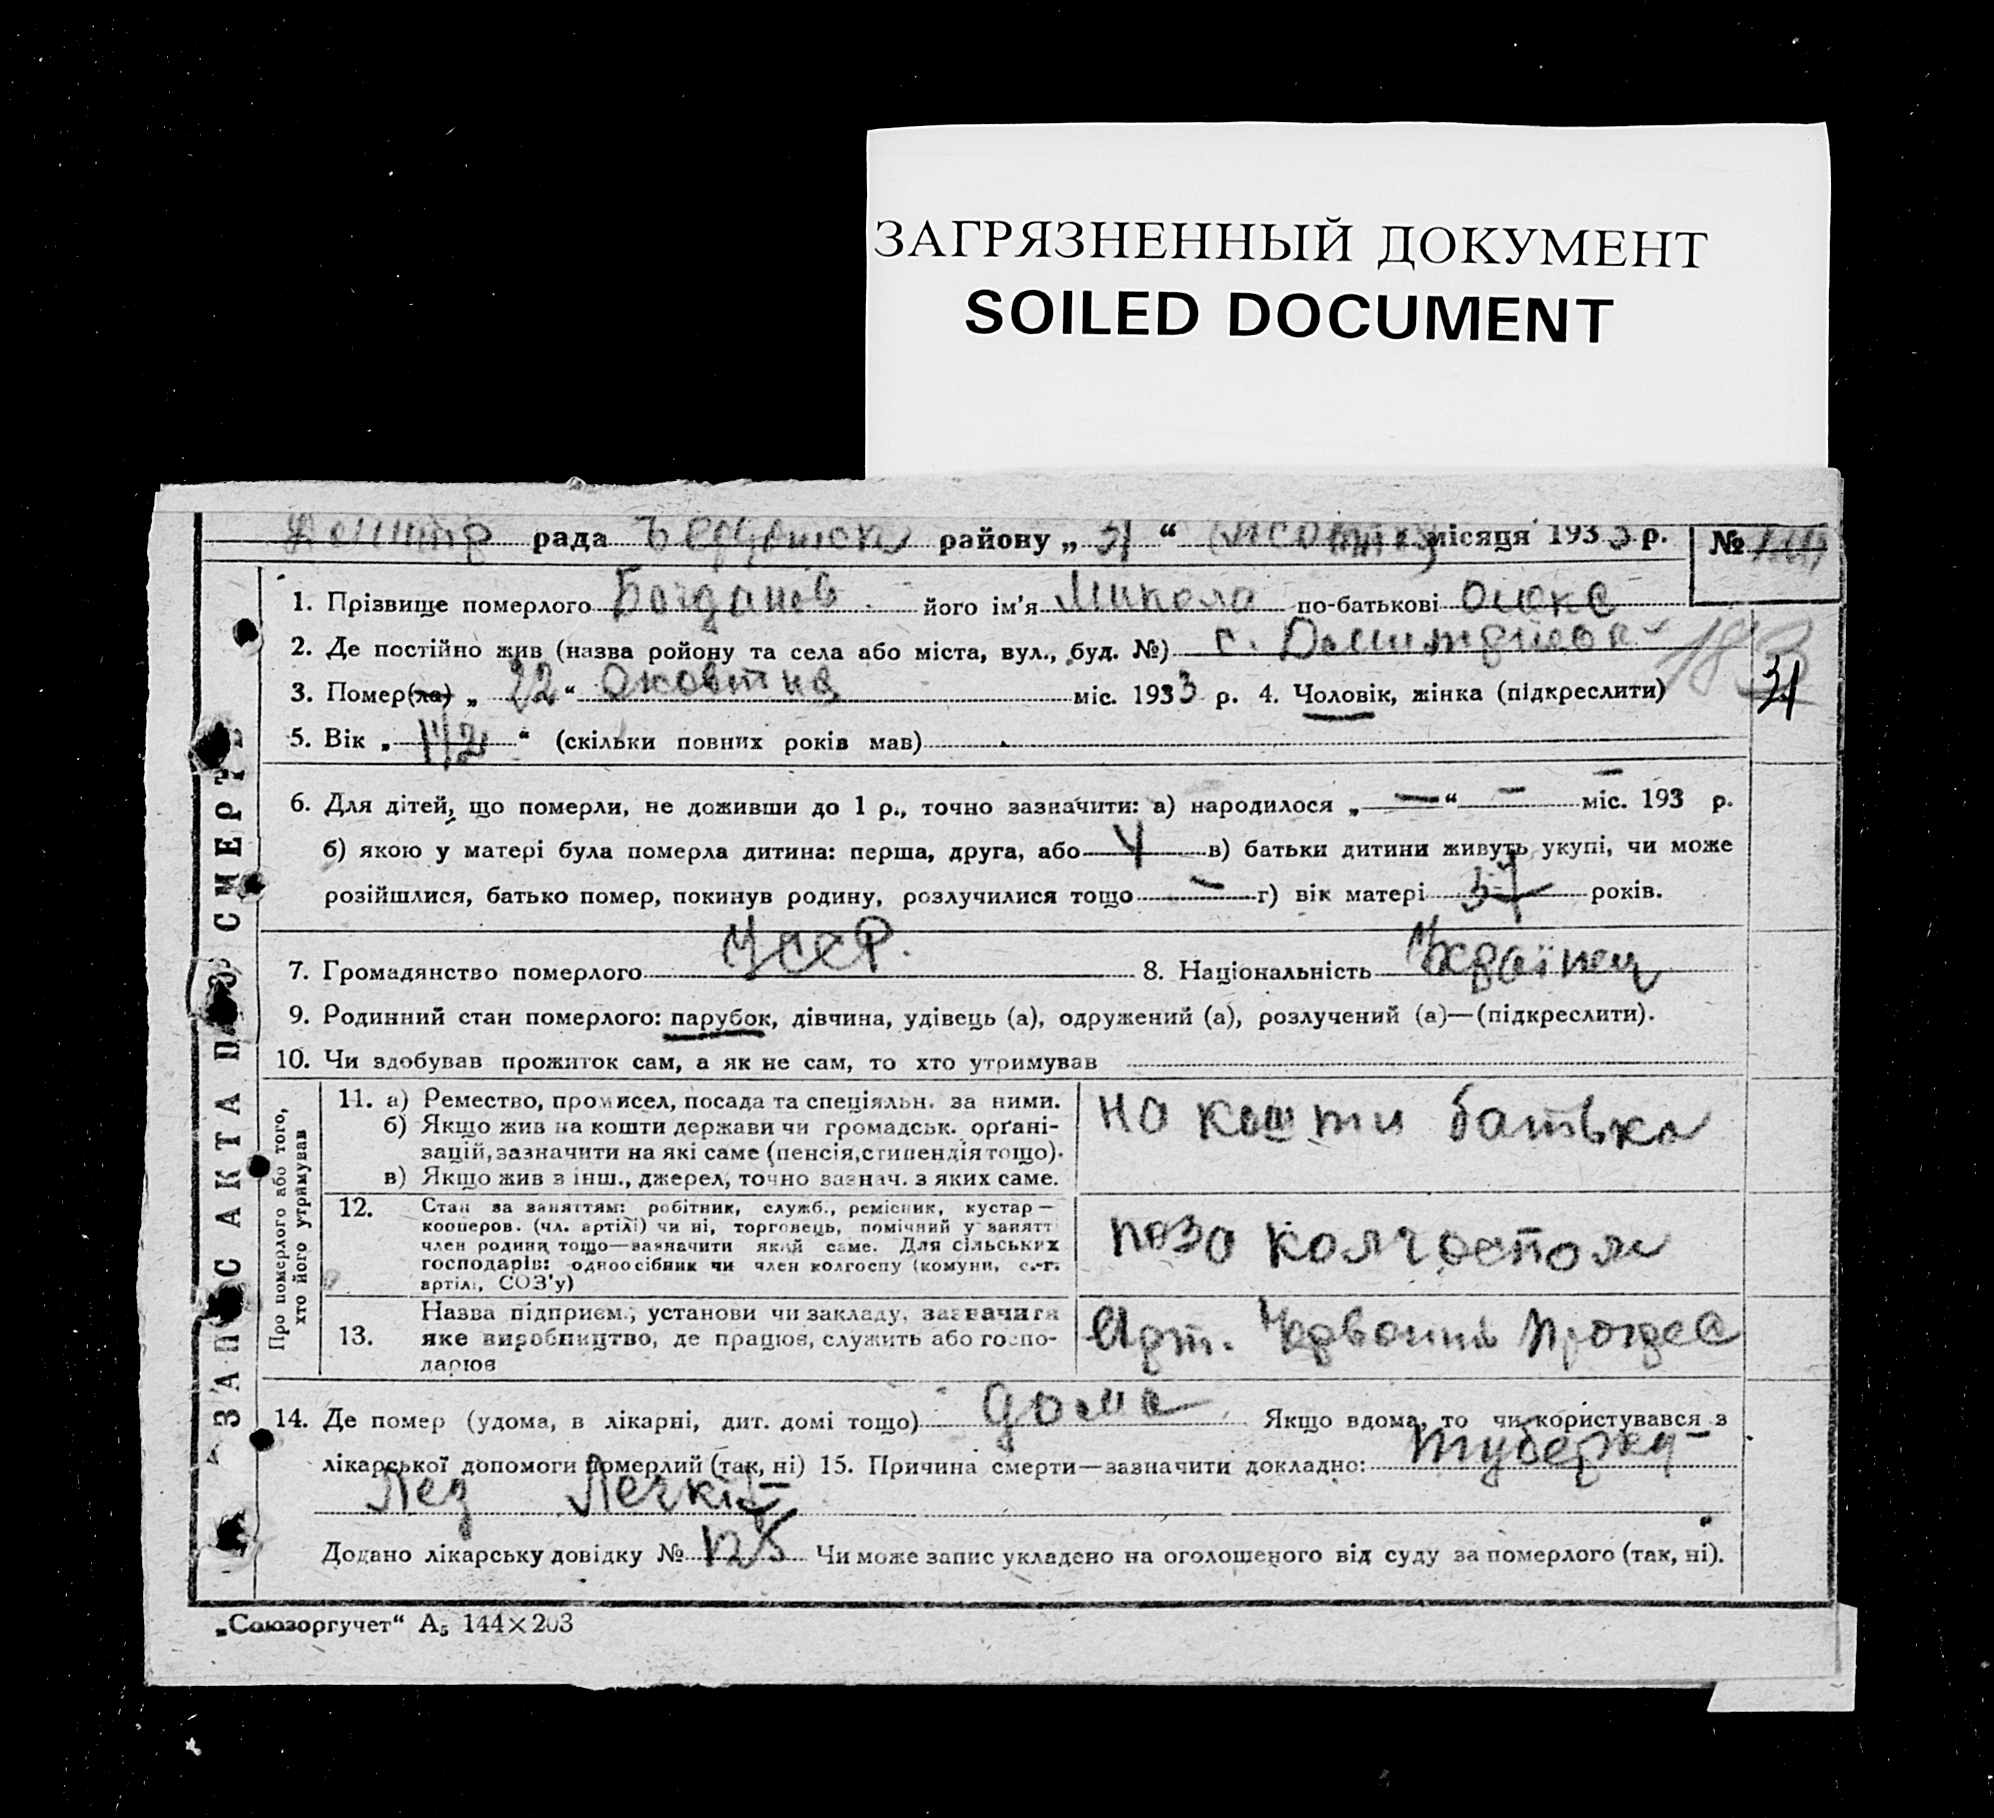 ЗАГРЯЗНЕННЫЙ ДОКУМЕНТ
SOILED DOCUMENT
рада района „ 31 “ місяця 1933 р. №
1. Прізвище померлого Богданов його ім'я Микола по-батькові
2. Де постійно жив (назва ройону та села або міста, вул., буд. №) с.
3. Помер(ла) „ 22 “ жовтня міс. 1933 р. 4. Чоловік, жінка (підкреслити)
31
5. Вік „ 1 1/2 “ (скільки повних років мав)
6. Для дітей, що померли, не доживши до 1 р., точно зазначити: а) народилося „ — “ — міс. 193 р.
б) якою у матері була померла дитина: перша, друга, або 4 в) батьки дитини живуть укупі, чи може
розійшлися, батько помер, покинув родину, розлучилися тощо — г) вік матері 37 років.
7. Громадянство померлого УССР. 8. Національність Українец
9. Родинний стан померлого: парубок, дівчина, удівець (а), одружений (а), розлучений (а)—(підкреслити).
10. Чи здобував прожиток сам, а як не сам, то хто утримував
ЗАПИС АКТА ПРО СМЕРТЬ
Про померлого або того, хто його утримував
11. а) Ремество, промисел, посада та спеціяльн. за ними.
б) Якщо жив на кошти держави чи громадськ. органі-
зацій, зазначити на які саме (пенсія, стипендія тощо).
в) Якщо жив з інш., джерел, точно зазнач. з яких саме.
на кошти батька
12. Стан за заняттям: робітник, служб., ремісник, кустар—
кооперов. (чл. артілі) чи ні, торговець, помічний у занятт
член родини тощо—зазначити який саме. Для сільських
господарів: одноосібник чи член колгоспу (комуни, с.-г.
артілі, СОЗ'у)
поза колгоспом
13. Назва підприєм., установи чи закладу, зазначити
яке виробництво, де працює, служить або госпо-
дарює
Арт.
14. Де помер (удома, в лікарні, дит. домі тощо) дома Якщо вдома, то чи користувався з
лікарської допомоги померлий (так, ні) 15. Причина смерти—зазначити докладно: туберку-
лез легких
Додано лікарську довідку № 125 Чи може запис укладено на оголошеного від суду за померлого (так, ні).
„Союзоргучет“ А5 144×203